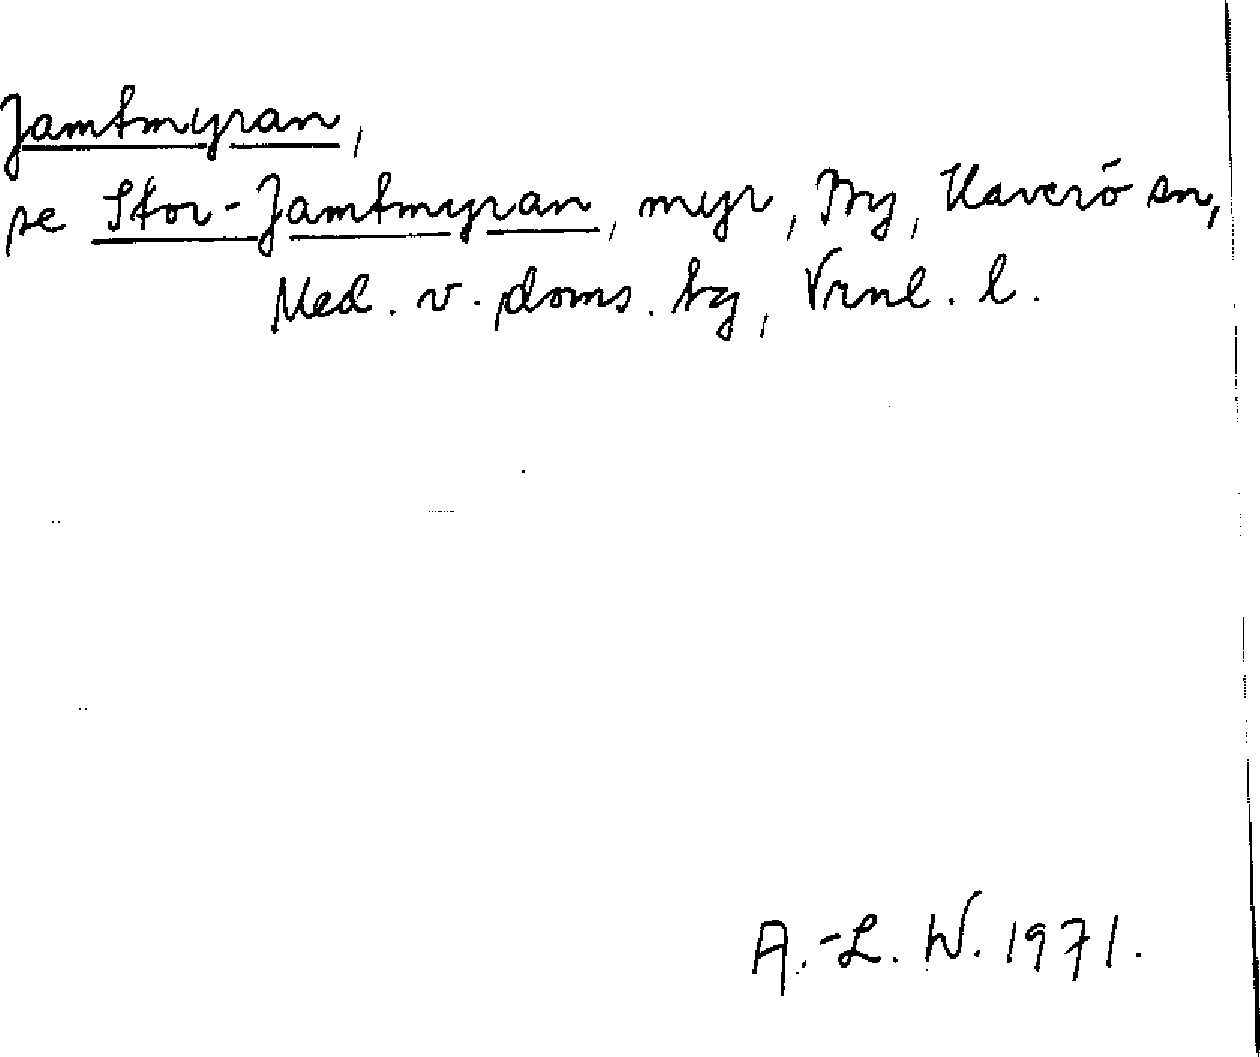 Jamtmyran,
se Stor-Jamtmyran, myr, By, Haverö sn,
Med. v. doms. tg, Vrnl. l.
A.-L. W. 1971.